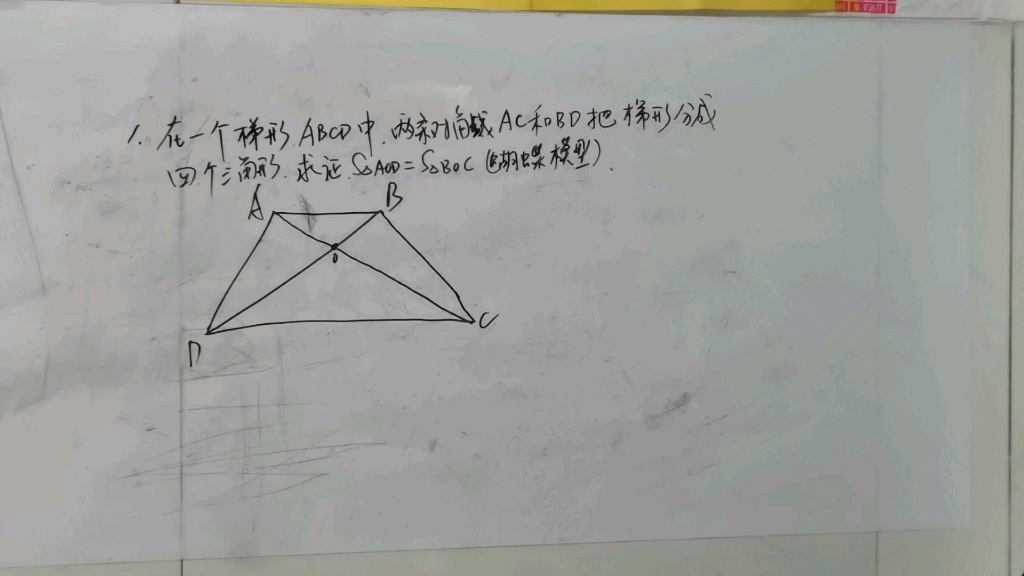 1. 在一个梯形ABCD中.两条对角线AC和BD把梯形分成
四个三角形.求证.S△AOD=S△BOC(蝴蝶模型).
A B
O
C
D